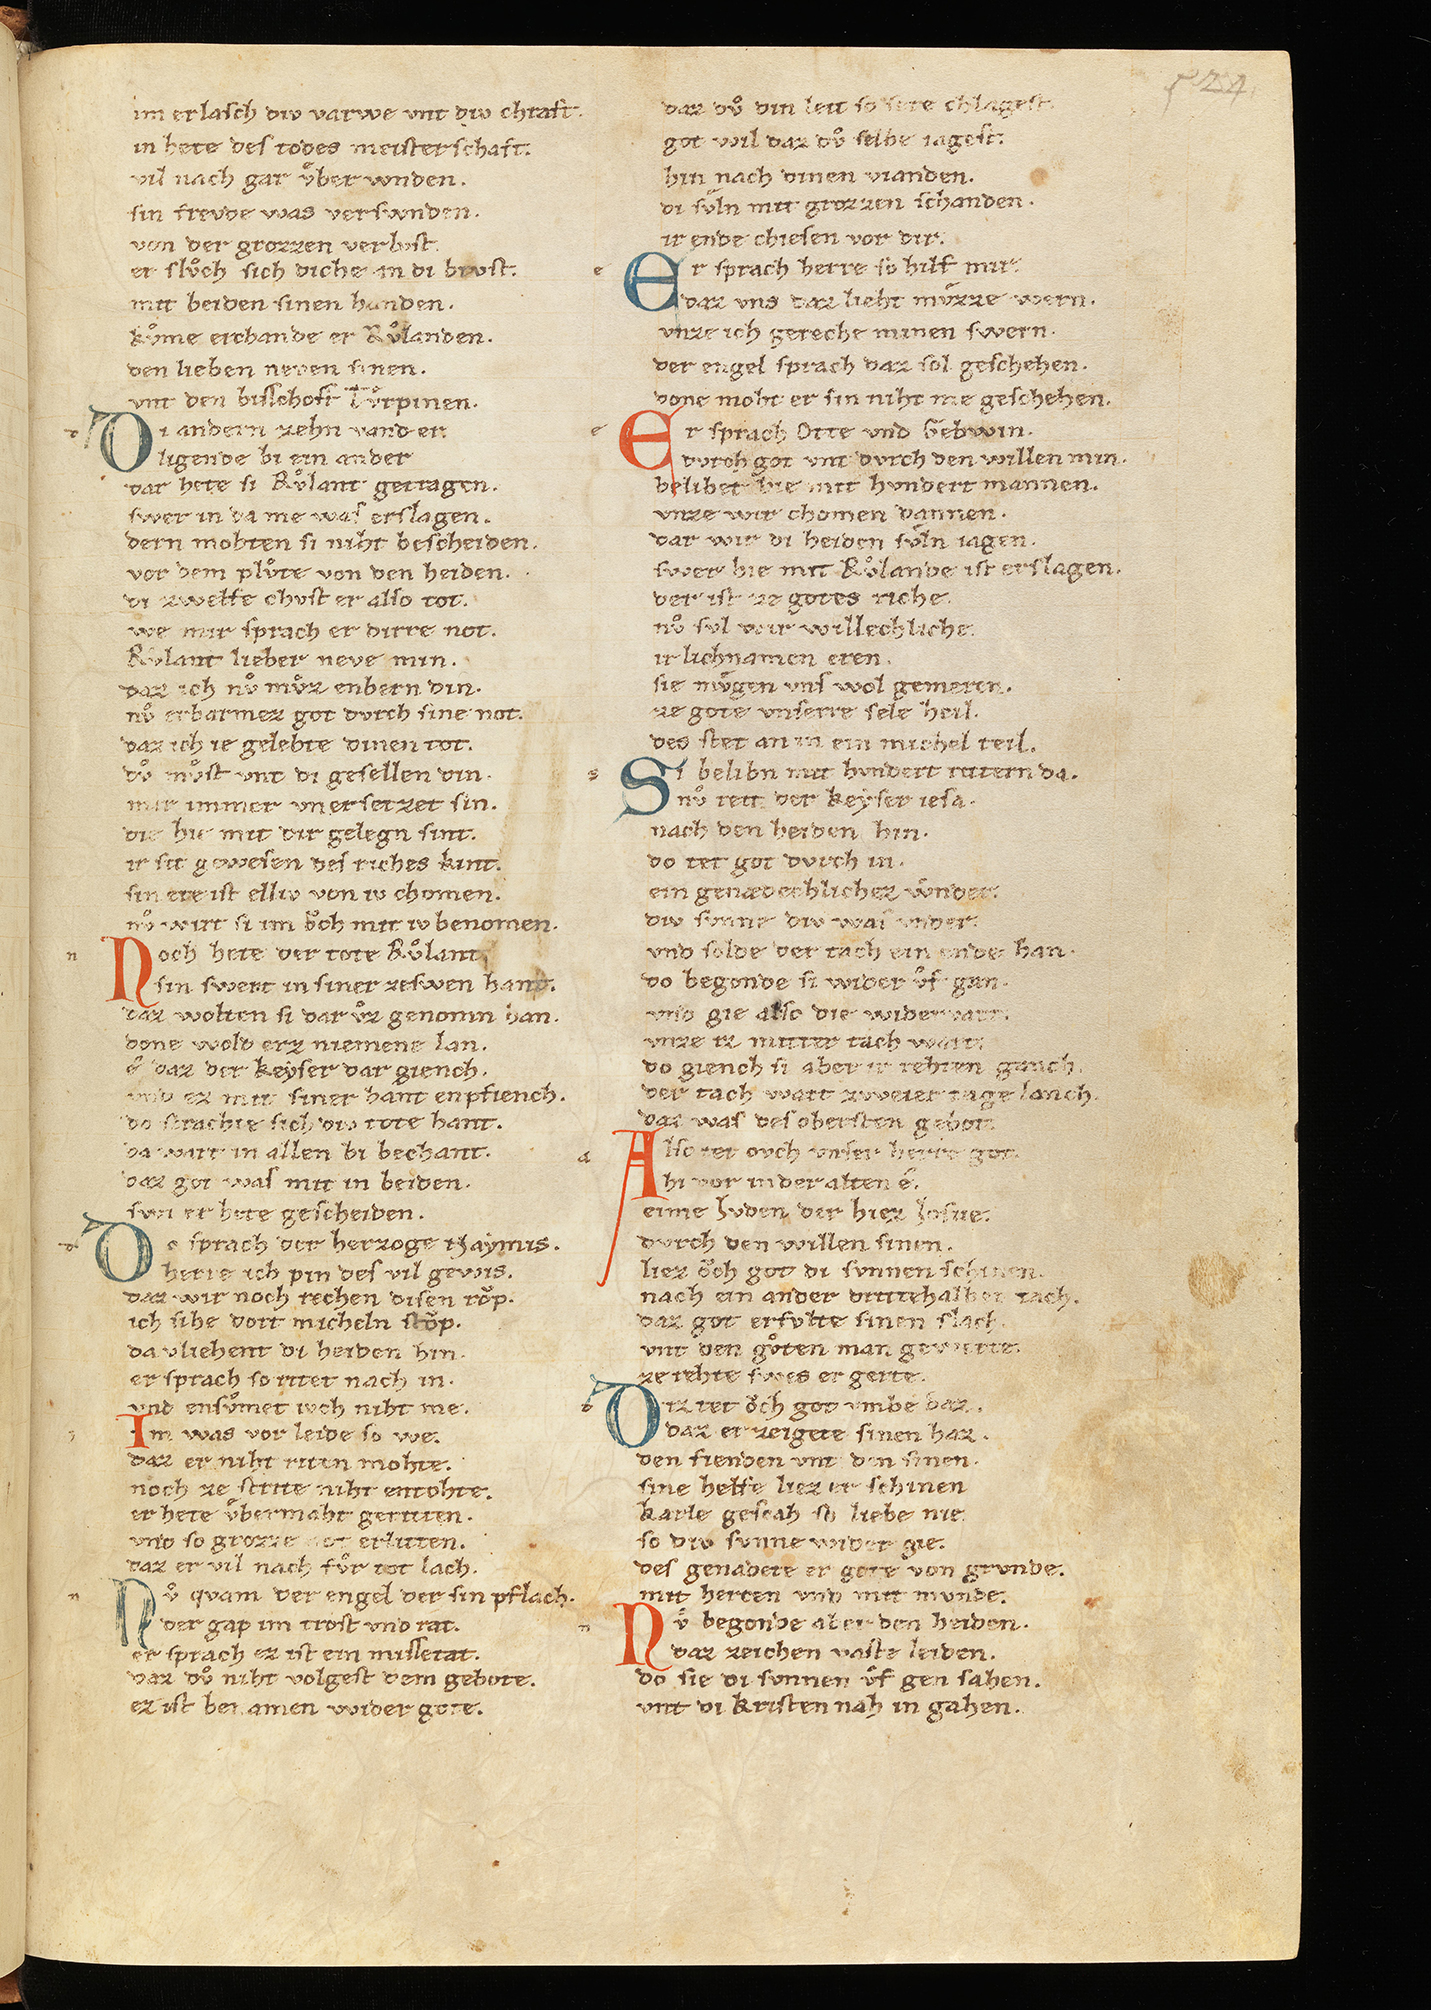 524
im erlasch div varwe vnt div chraft.
in hete des todes meisterschaft.
vil nach gar vͤber wnden.
sin frevde was verswnden.
von der grozzen verlust.
er slvͦch sich diche in di brust.
mit beiden sinen handen.
kvͦme erchande er Rvͦlanden.
den lieben neven sinen.
vnt den bisschoff Tvͦrpinen.
Di andern zehn vand er
ligende bi ein ander
dar hete si Rvͦlant getragen.
swer in da me was erslagen.
dern mohten si niht bescheiden.
vor dem plvͦte von den heiden.
di zwelfe chust er also tot.
we mir sprach er dirre not.
Rvͦlant lieber neve min.
daz ich nvͦ mvͦz enbern din.
nvͦ erbarmez got durch sine not.
daz ich ie gelebte dinen tot.
dvͦ mvͦst vnt di gesellen din.
mir immer vnersetzet sin.
die hie mit dir gelegn sint.
ir sit gewesen des riches kint.
sin ere ist elliv von iv chomen.
nvͦ wirt si im oͮch mit iv benomen.
n Noch hete der tote Rvͦlant
sin swert in siner zeswen hant.
daz wolten si dar vͦz genomn han.
done wold erz niemene lan.
e daz der keyser dar giench.
vnd ez mit siner hant enpfiench.
do strachte sich div tote hant.
da wart in allen bi bechant.
daz got was mit in beiden.
swi er hete gescheiden.
Do sprach der herzoge Naymis.
herre ich pin des vil gewis.
daz wir noch rechen disen roͮp.
ich sihe dort micheln stoͮp.
da vliehent di heiden hin.
er sprach so ritet nach in.
vnd ensvͦmet iwch niht me.
Im was vor leide so we.
daz er niht riten mohte.
noch ze strite niht entohte.
er hete vͤbermaht geriten.
vnd so grozze not erliten.
daz er vil nach fvͦr tot lach.
n Nvͦ quam der engel der sin pflach.
der gap im trost vnd rat.
er sprach ez ist ein missetat.
daz dvͦ niht volgest dem gebote.
ez ist benamen wider gote.
daz dvͦ din leit so sere chlagest.
got wil daz dvͦ selbe iagest.
hin nach dinen vianden.
di svͤln mit grozzen schanden.
ir ende chiesen vor dir.
e Er sprach herre so hilf mir.
daz vns daz lieht mvͤzze wern.
vnze ich gereche minen swern.
der engel sprach daz sol geschehen.
done moht er sin niht me geschehen.
e Er sprach Otte vnd Gebwin.
durch got vnt durch den willen min.
belibet hie mit hundert mannen.
vnze wir chomen dannen.
dar wir di heiden svͤln iagen.
swer hie mit Rvͦlande ist erslagen.
der ist ze gotes riche.
nvͦ sul wir willechliche.
ir lichnamen eren.
sie mvͤgen vns wol gemeren.
ze gote vnserre sele heil.
des stet an in ein michel teil.
s Si belibn mit hundert rittern da.
nvͦ reit der keyser iesa.
nach den heiden hin.
do tet got durch in.
ein genædechlichez wͤnder.
div sunne div was vnder.
vnd solde der tach ein ende han.
do begonde si wider vͦf gan.
vnd gie also die widervart.
vnze iz mitter tach wart.
do giench si aber ir rehten ganch.
der tach wart zweier tage lanch.
daz was des obersten gebot.
a Also tet ovch vnser herre got.
hi vor in der alten e.
eime Juden der hiez Josue.
durch den willen sinen.
liez oͮch got di sunnen schinen.
nach ein ander drittehalben tach.
daz got erfulte sinen slach.
vnt den gvͦten man gewerte.
ze rehte swes er gerte.
d Diz tet oͮch got vmbe daz.
daz er zeigete sinen haz.
den fienden vnt den sinen.
sine helfe liez er schinen
karle gescah so liebe nie
so div sunne wider gie.
des genadete er gote von grunde.
mit herten vnd mit munde.
n Nvͦ begonde aber den heiden.
daz zeichen vaste leiden.
do sie di sunnen vͦf gen sahen.
vnt di kristen nah in gahen.